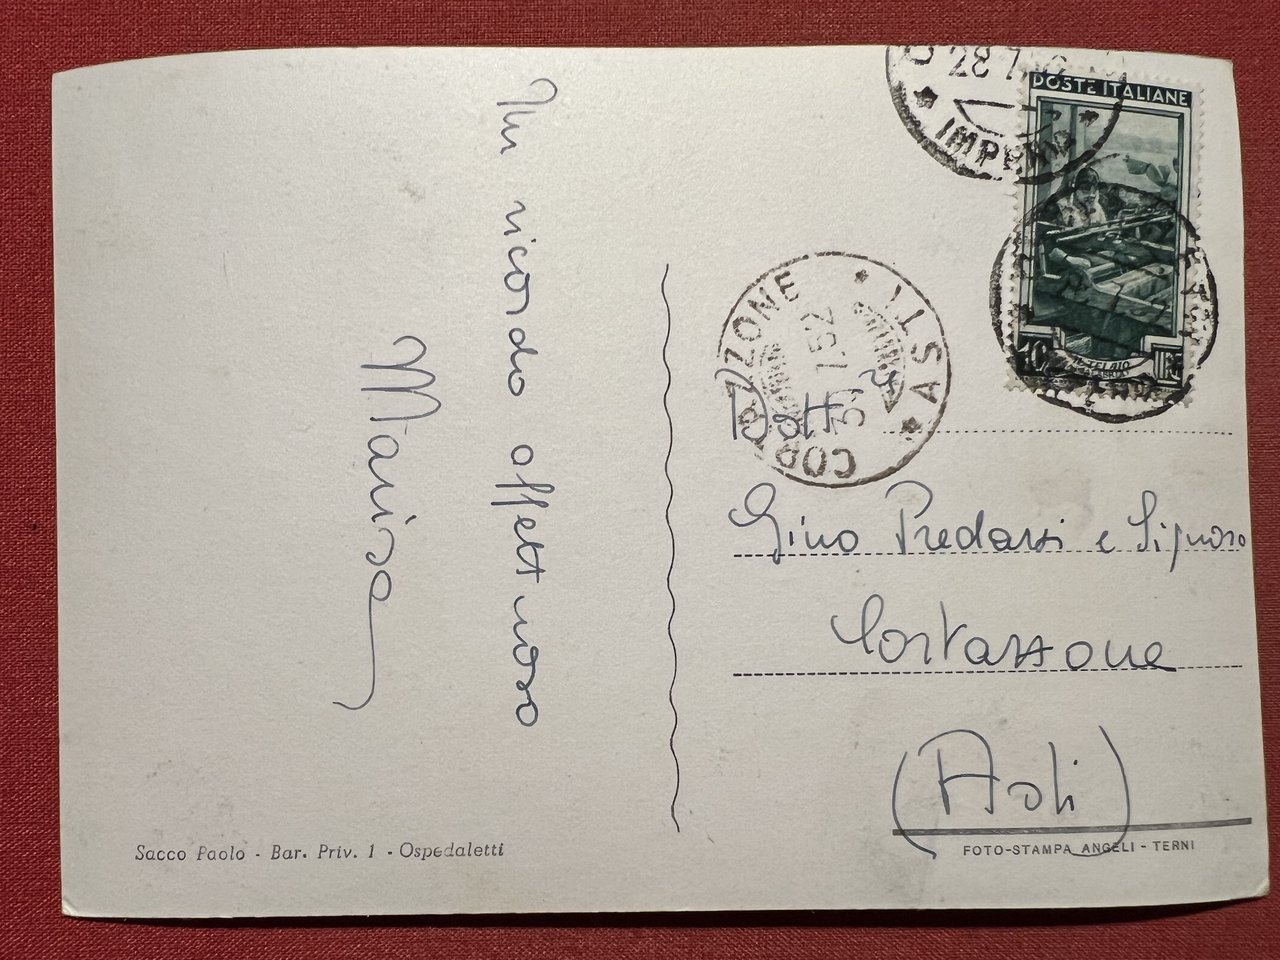 Un ricordo affettuoso
Marisa
Sacco Paolo - Bar. Priv. 1 - Ospedaletti
IMPERIA
POSTE ITALIANE
IL TELAIO
CORTAZZONE * ASTI *
31.7.52
Dott.
Gino Predassi e Signora
Cortazzone
(Asti)
FOTO-STAMPA ANGELI - TERNI